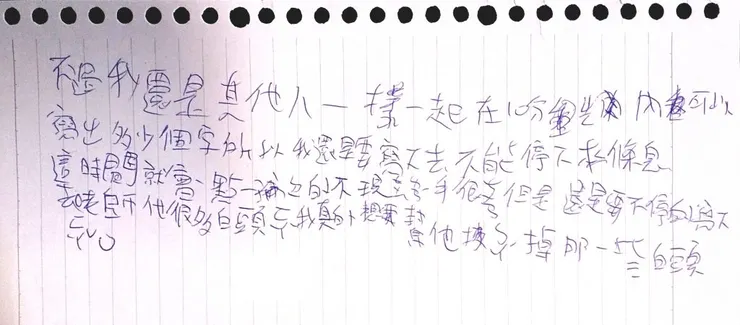 不過我還是其他人一樣一起在10分鐘之內 內看可以
寫出多少個字所以我還是要寫下去不能停下來休息
這時間就會一點一滴的不現在手很害但是還是要不停的寫下
去老師他很多白頭 我真的想要幫
他拔 掉那一些白頭